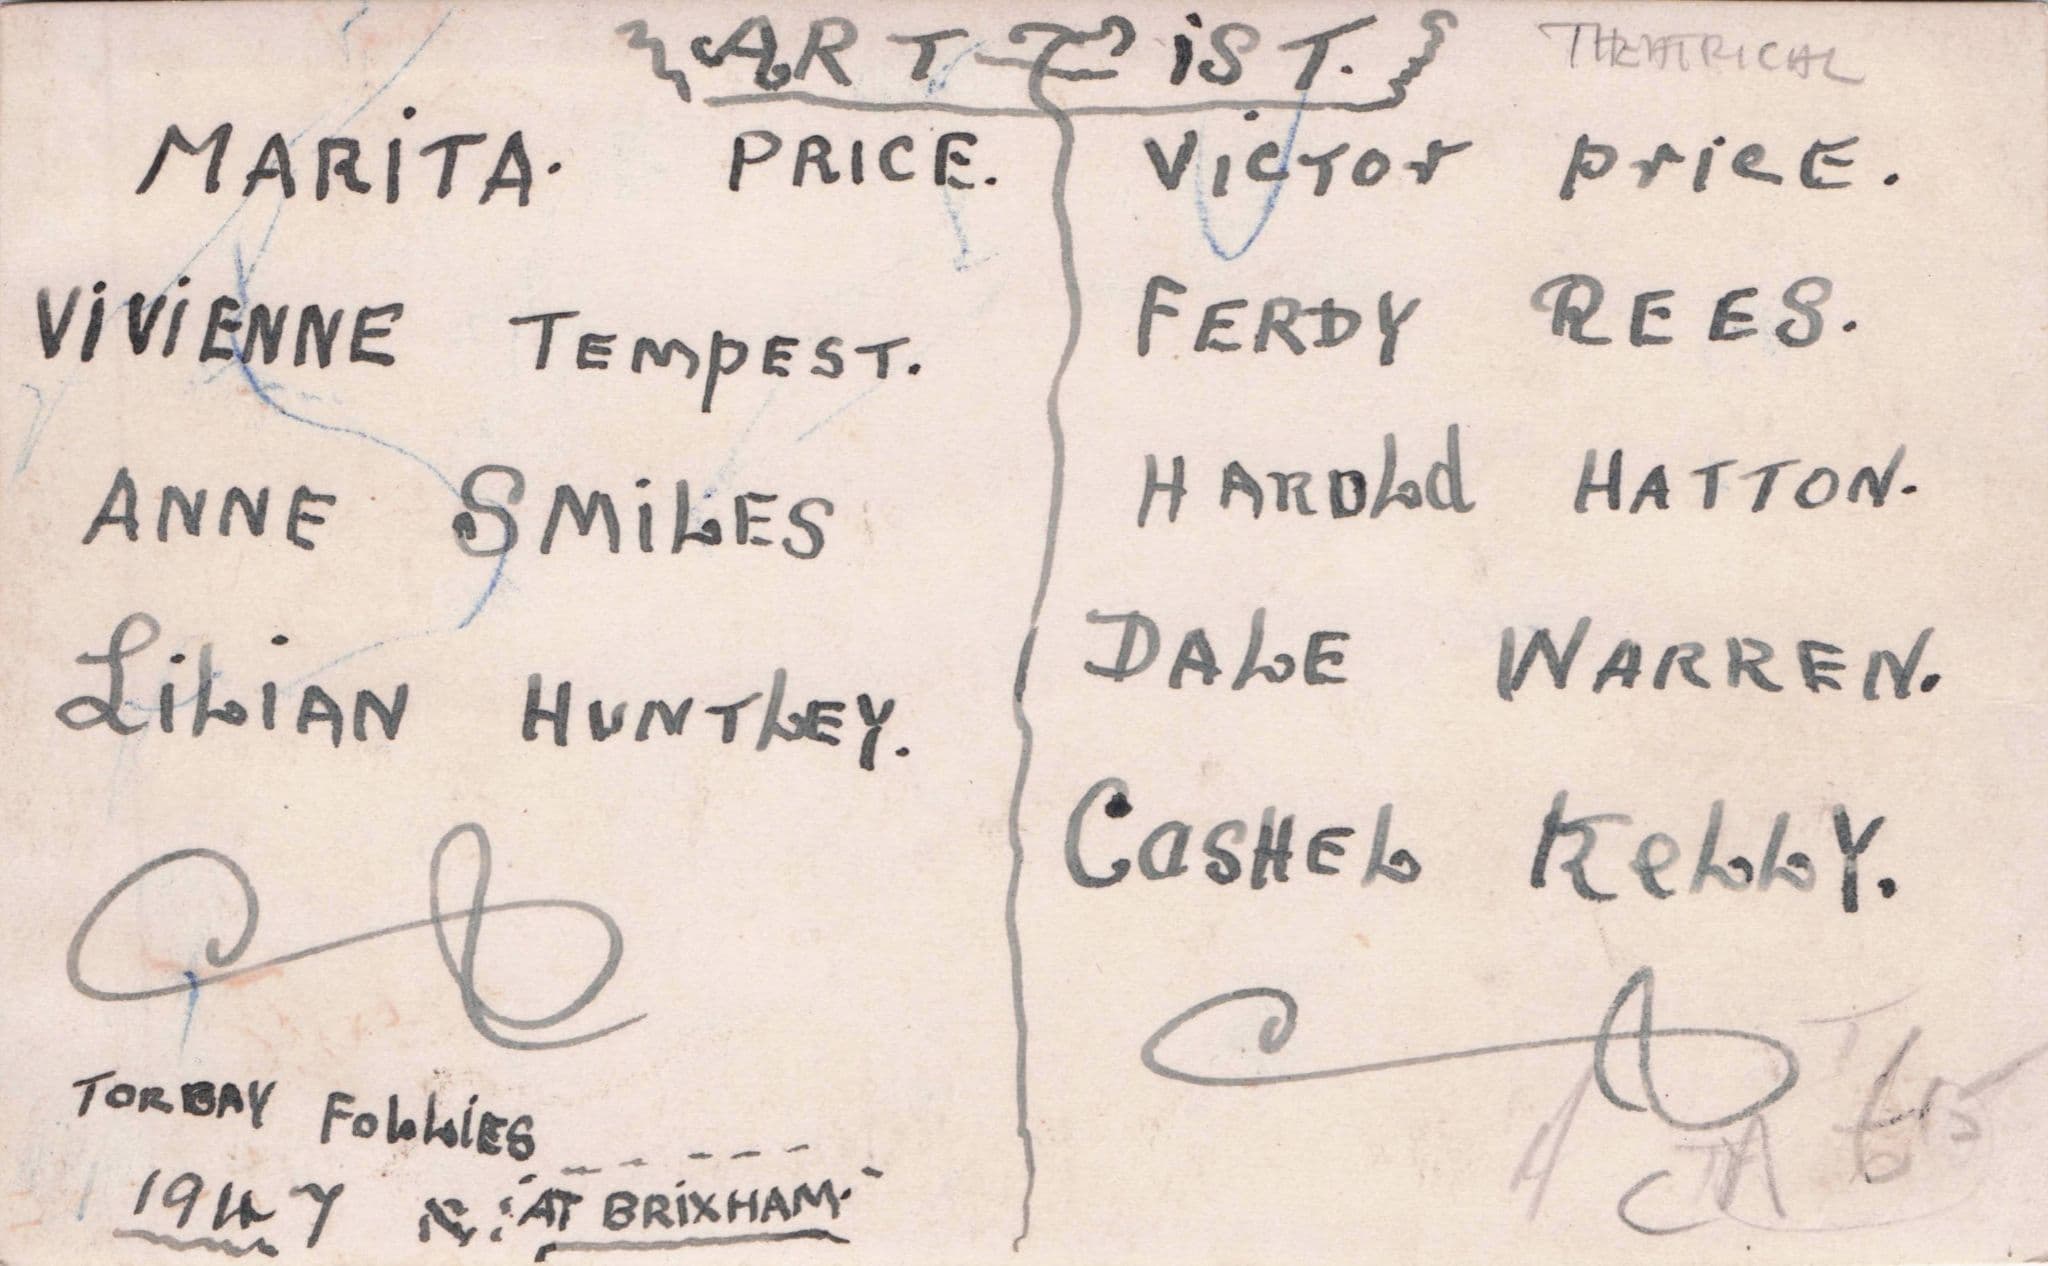 ARTIST.
THEATRICAL
MARiTA. PRICE.
ViViENNE TEMPEST.
ANNE SMiLES
LiLiAN HUNTLEY.
VicTor PricE.
FERDY REES.
HAROLd HATTON.
DALE WARREN.
CaSHEL KeLLY.
TORBAY FoLLiES
1947 AT BRiXHAM.